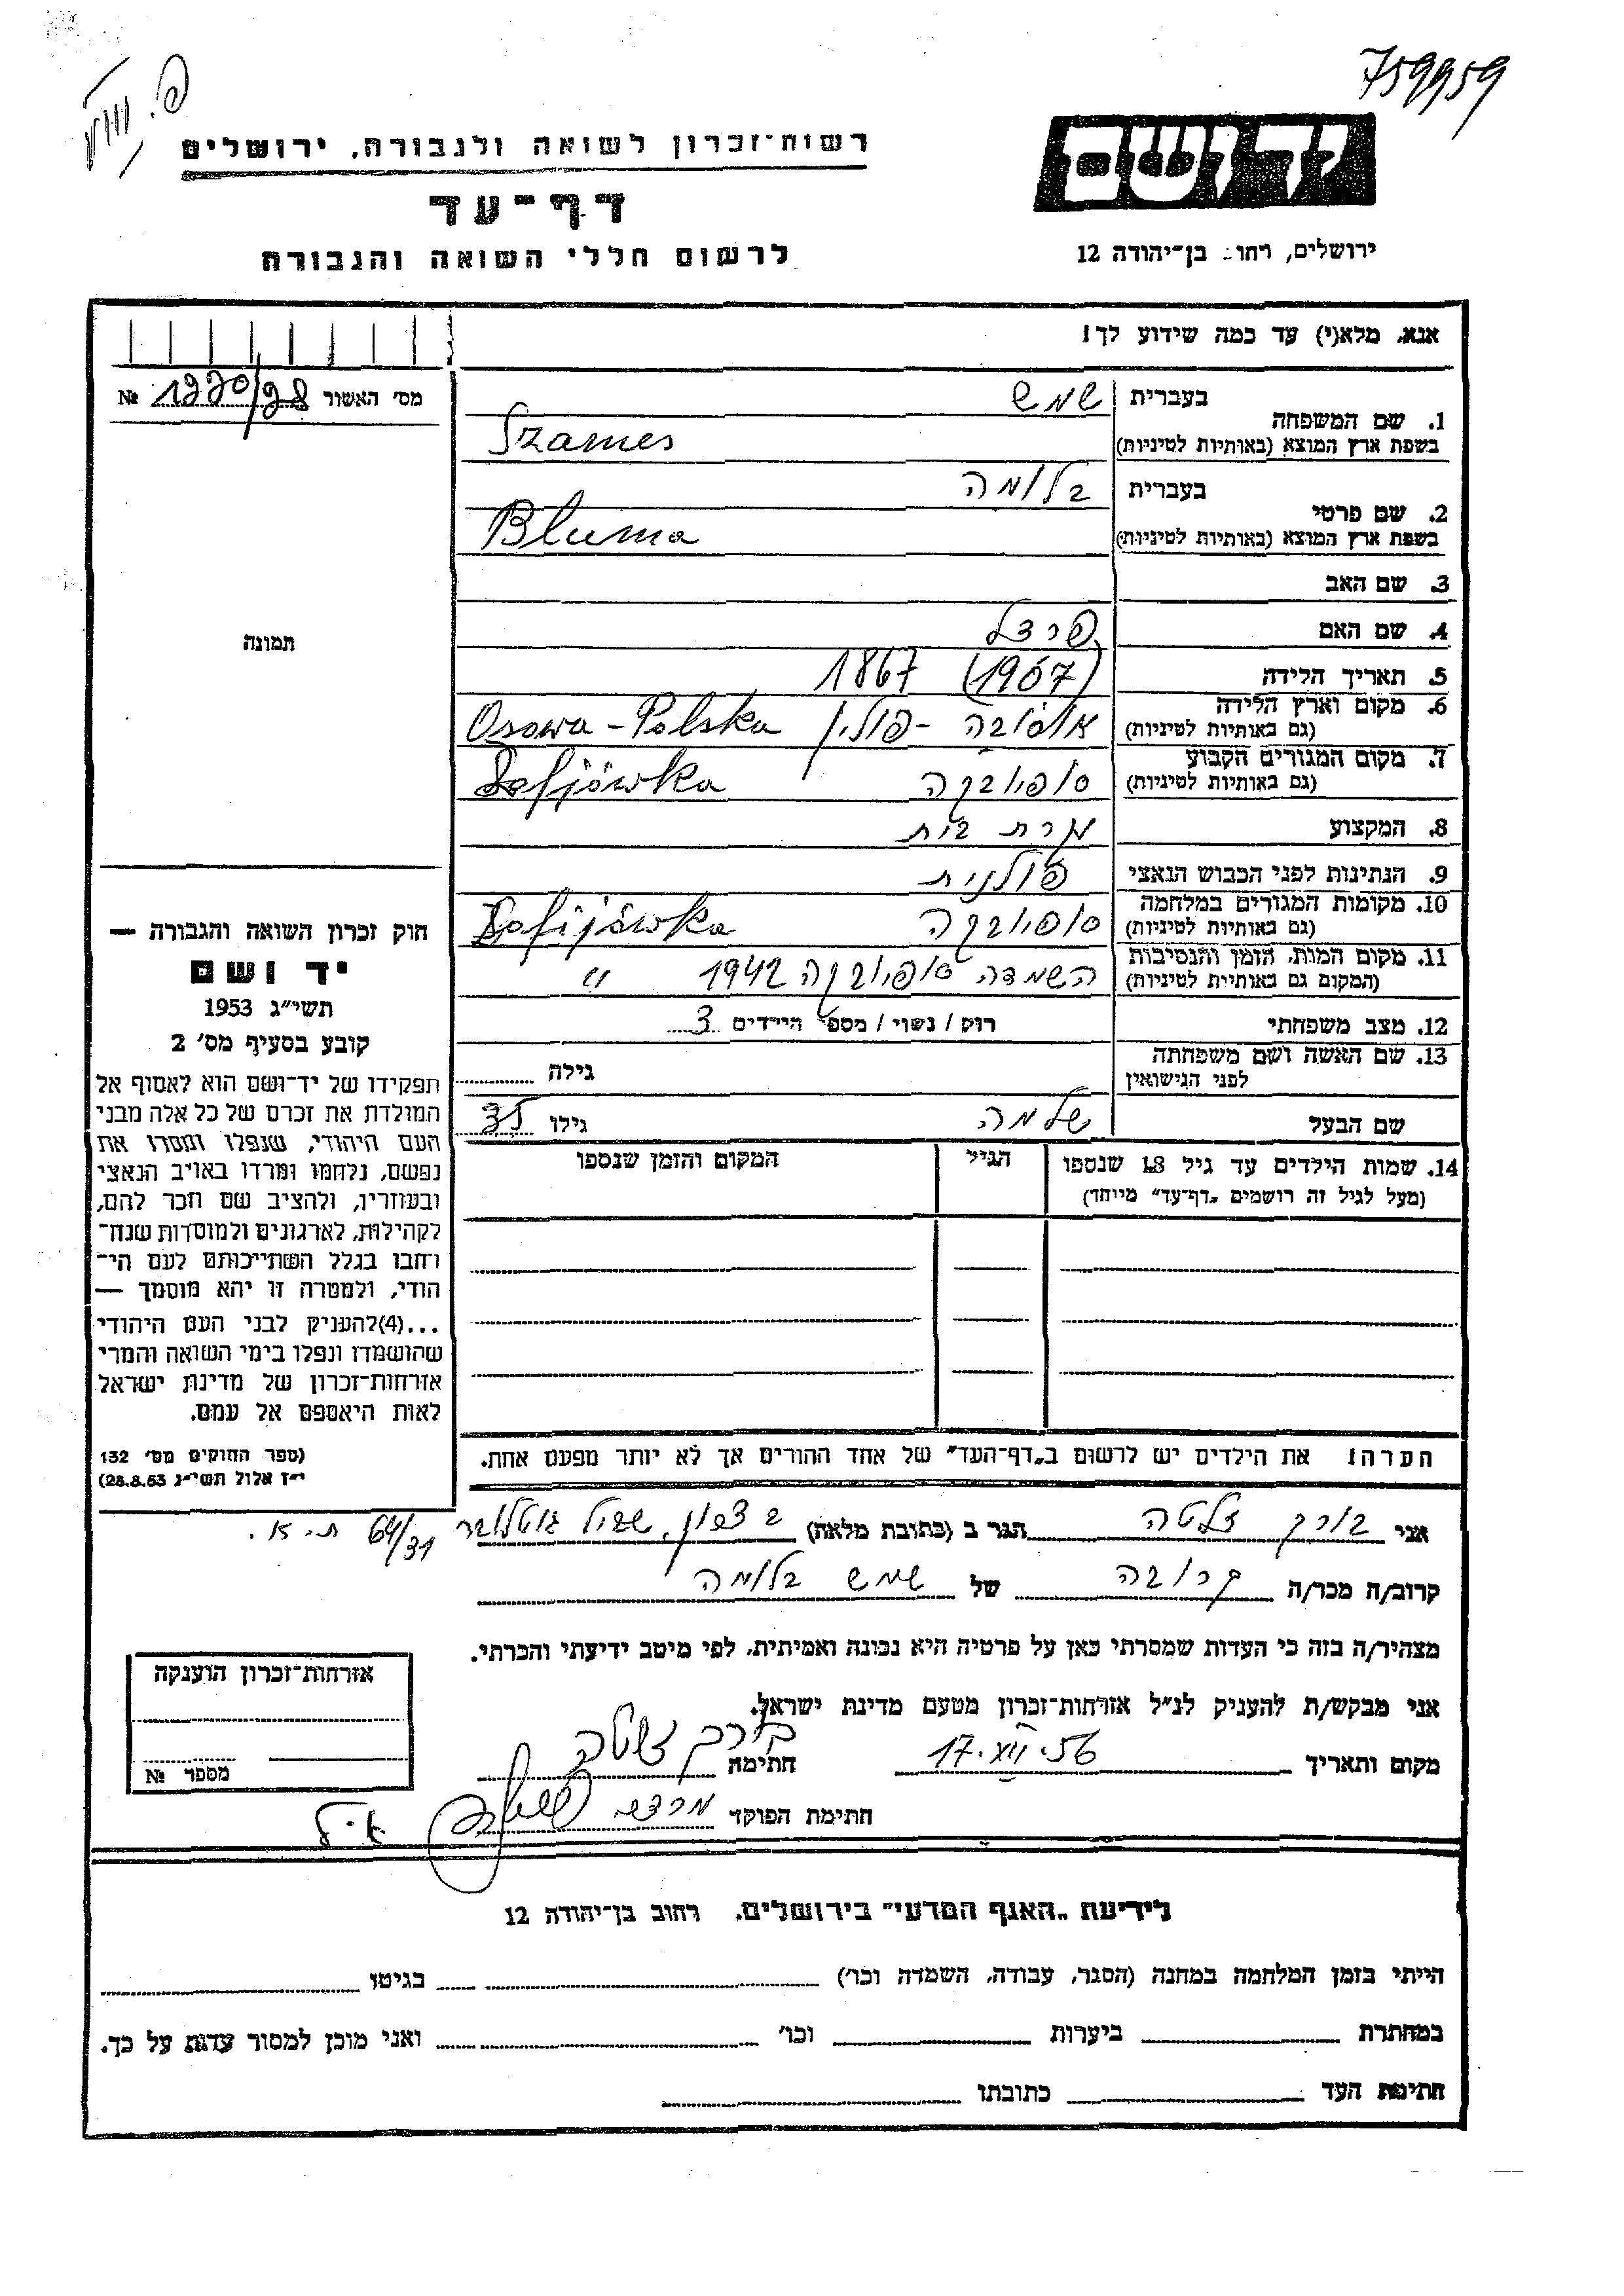 759959
רשות־זכרון לשואה ולגבורה, ירושלים
יד ושם
דף־עד
ירושלים, רחוב בן־יהודה 12
לרשום חללי השואה והגבורה
אנא, מלא(י) עד כמה שידוע לך!
מס׳ האשור № 1220/98
1. שם המשפחה
בעברית שמש
בשפת ארץ המוצא (באותיות לטיניות) Szames
2. שם פרטי
בעברית בלומה
בשפת ארץ המוצא (באותיות לטיניות) Bluma
תמונה
3. שם האב
4. שם האם פרצל
5. תאריך הלידה (1907) 1867
6. מקום וארץ הלידה
(גם באותיות לטיניות) אוסובה - פולין Osowa - Polska
7. מקום המגורים הקבוע
(גם באותיות לטיניות) סופיובקה Zofjówka
8. המקצוע עקרת בית
9. הנתינות לפני הכבוש הנאצי פולנית
10. מקומות המגורים במלחמה
(גם באותיות לטיניות) סופיובקה Zofijówka
11. מקום המות, הזמן והנסיבות
(המקום גם באותיות לטיניות) השמדה סופיובקה 1942 "
12. מצב משפחתי רווק / נשוי / מספר הילדים 3
13. שם האשה ושם משפחתה
לפני הנישואין גילה
שם הבעל שלמה גילו 35
14. שמות הילדים עד גיל 18 שנספו הגיל המקום והזמן שנספו
(מעל לגיל זה רושמים „דף־עד” מיוחד)
הערה! את הילדים יש לרשום ב„דף־העד” של אחד ההורים אך לא יותר מפעם אחת.
חוק זכרון השואה והגבורה —
יד ושם
תשי״ג 1953
קובע בסעיף מס׳ 2
תפקידו של יד־ושם הוא לאסוף אל
המולדת את זכרם של כל אלה מבני
העם היהודי, שנפלו ומסרו את
נפשם, נלחמו ומרדו באויב הנאצי
ובעוזריו, ולהציב שם וזכר להם,
לקהילות, לארגונים ולמוסדות שנח־
רבו בגלל השתייכותם לעם הי־
הודי, ולמטרה זו יהא מוסמך —
...(4)להעניק לבני העם היהודי
שהושמדו ונפלו בימי השואה והמרי
אזרחות־זכרון של מדינת ישראל
לאות היאספם אל עמם.
(ספר החוקים מס׳ 132
י״ז אלול תשי״ג 28.8.53)
אני בורק זלטה הגר ב (כתובת מלאה) 64/31 ת.א.
קרוב/ה מכר/ה קרובה של שמש בלומה
מצהיר/ה בזה כי העדות שמסרתי כאן על פרטיה היא נכונה ואמיתית, לפי מיטב ידיעתי והכרתי.
אני מבקש/ת להעניק לנ״ל אזרחות־זכרון מטעם מדינת ישראל.
מקום ותאריך 17.XII.56 חתימה בורק זלטה
חתימת הפוקד מרדכי
אזרחות־זכרון הוענקה
מספר №
לידיעת „האגף המדעי” בירושלים, רחוב בן־יהודה 12
הייתי בזמן המלחמה במחנה (הסגר, עבודה, השמדה וכו׳) בגיטו
במחתרת ביערות וכו׳ ואני מוכן למסור עדות על כך.
חתימת העד כתובתו